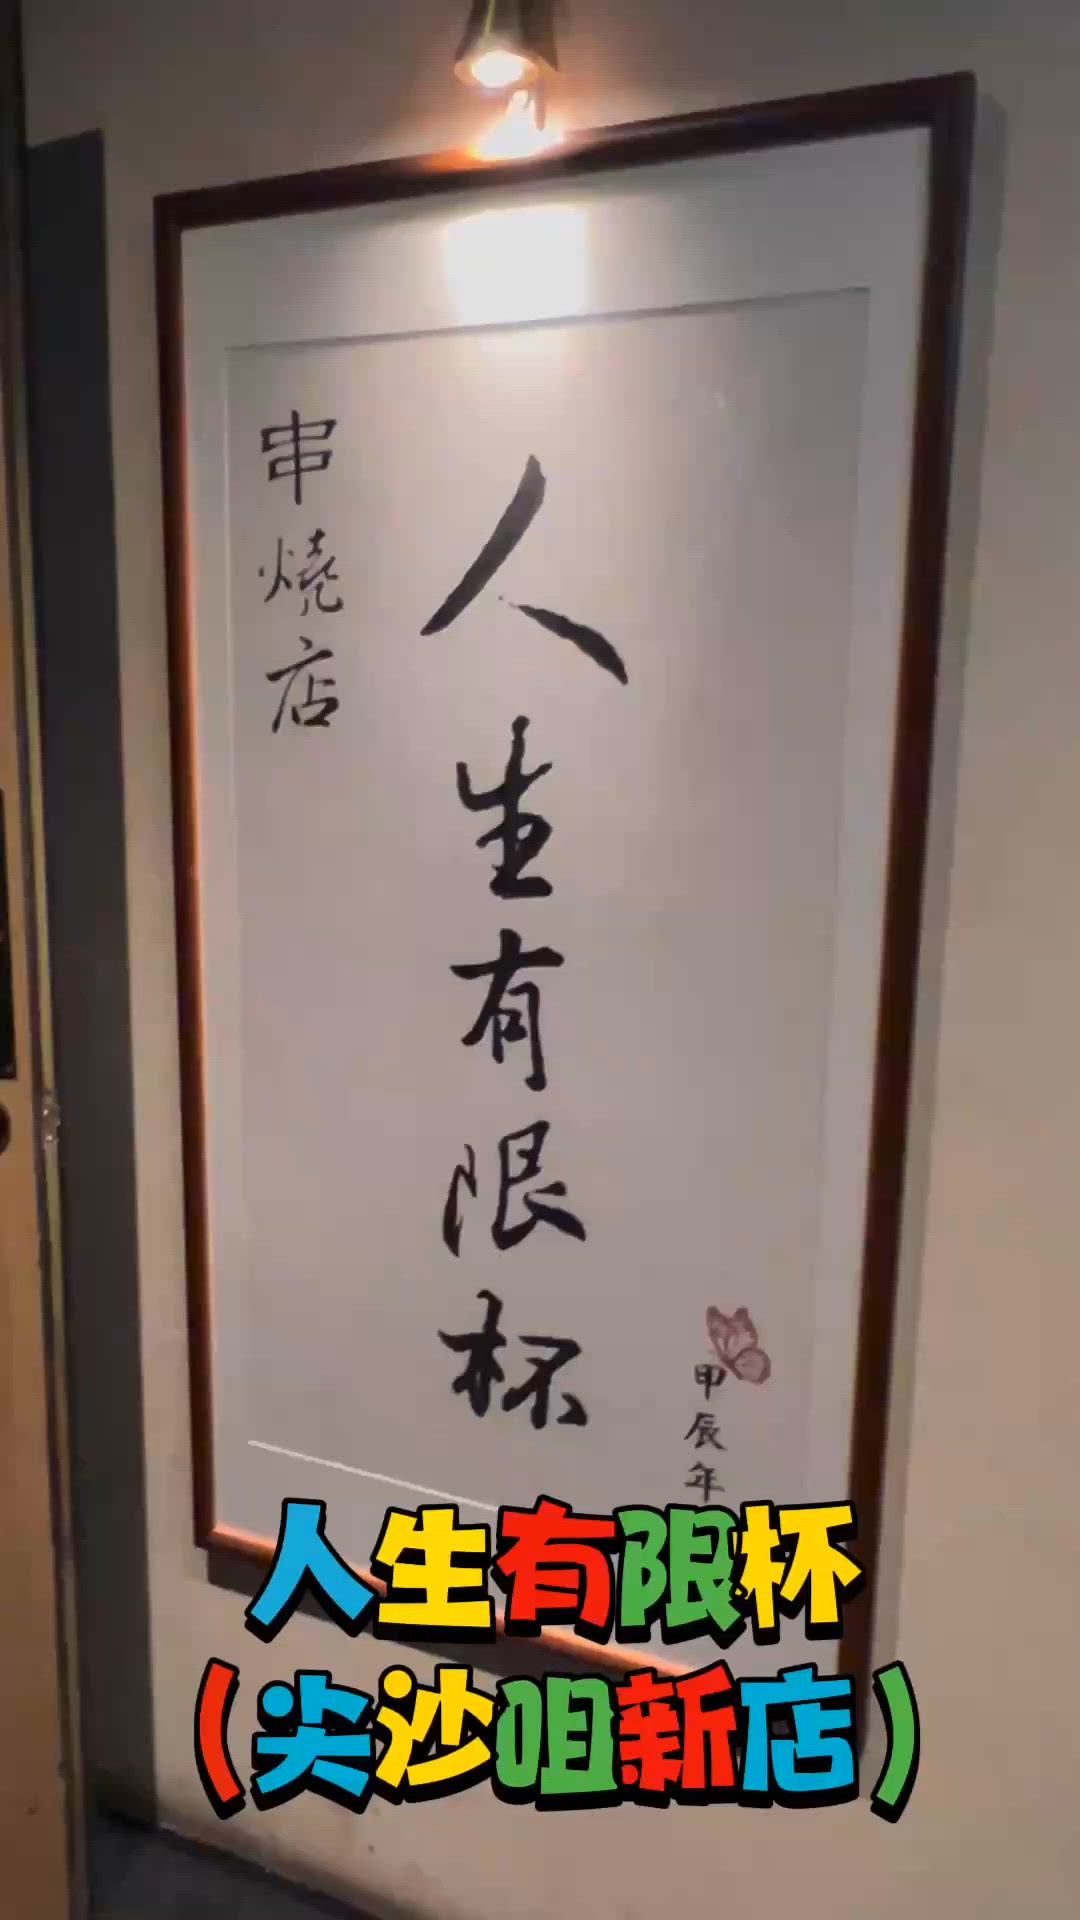 人生有限杯
串燒店
甲辰年
人生有限杯
(尖沙咀新店)